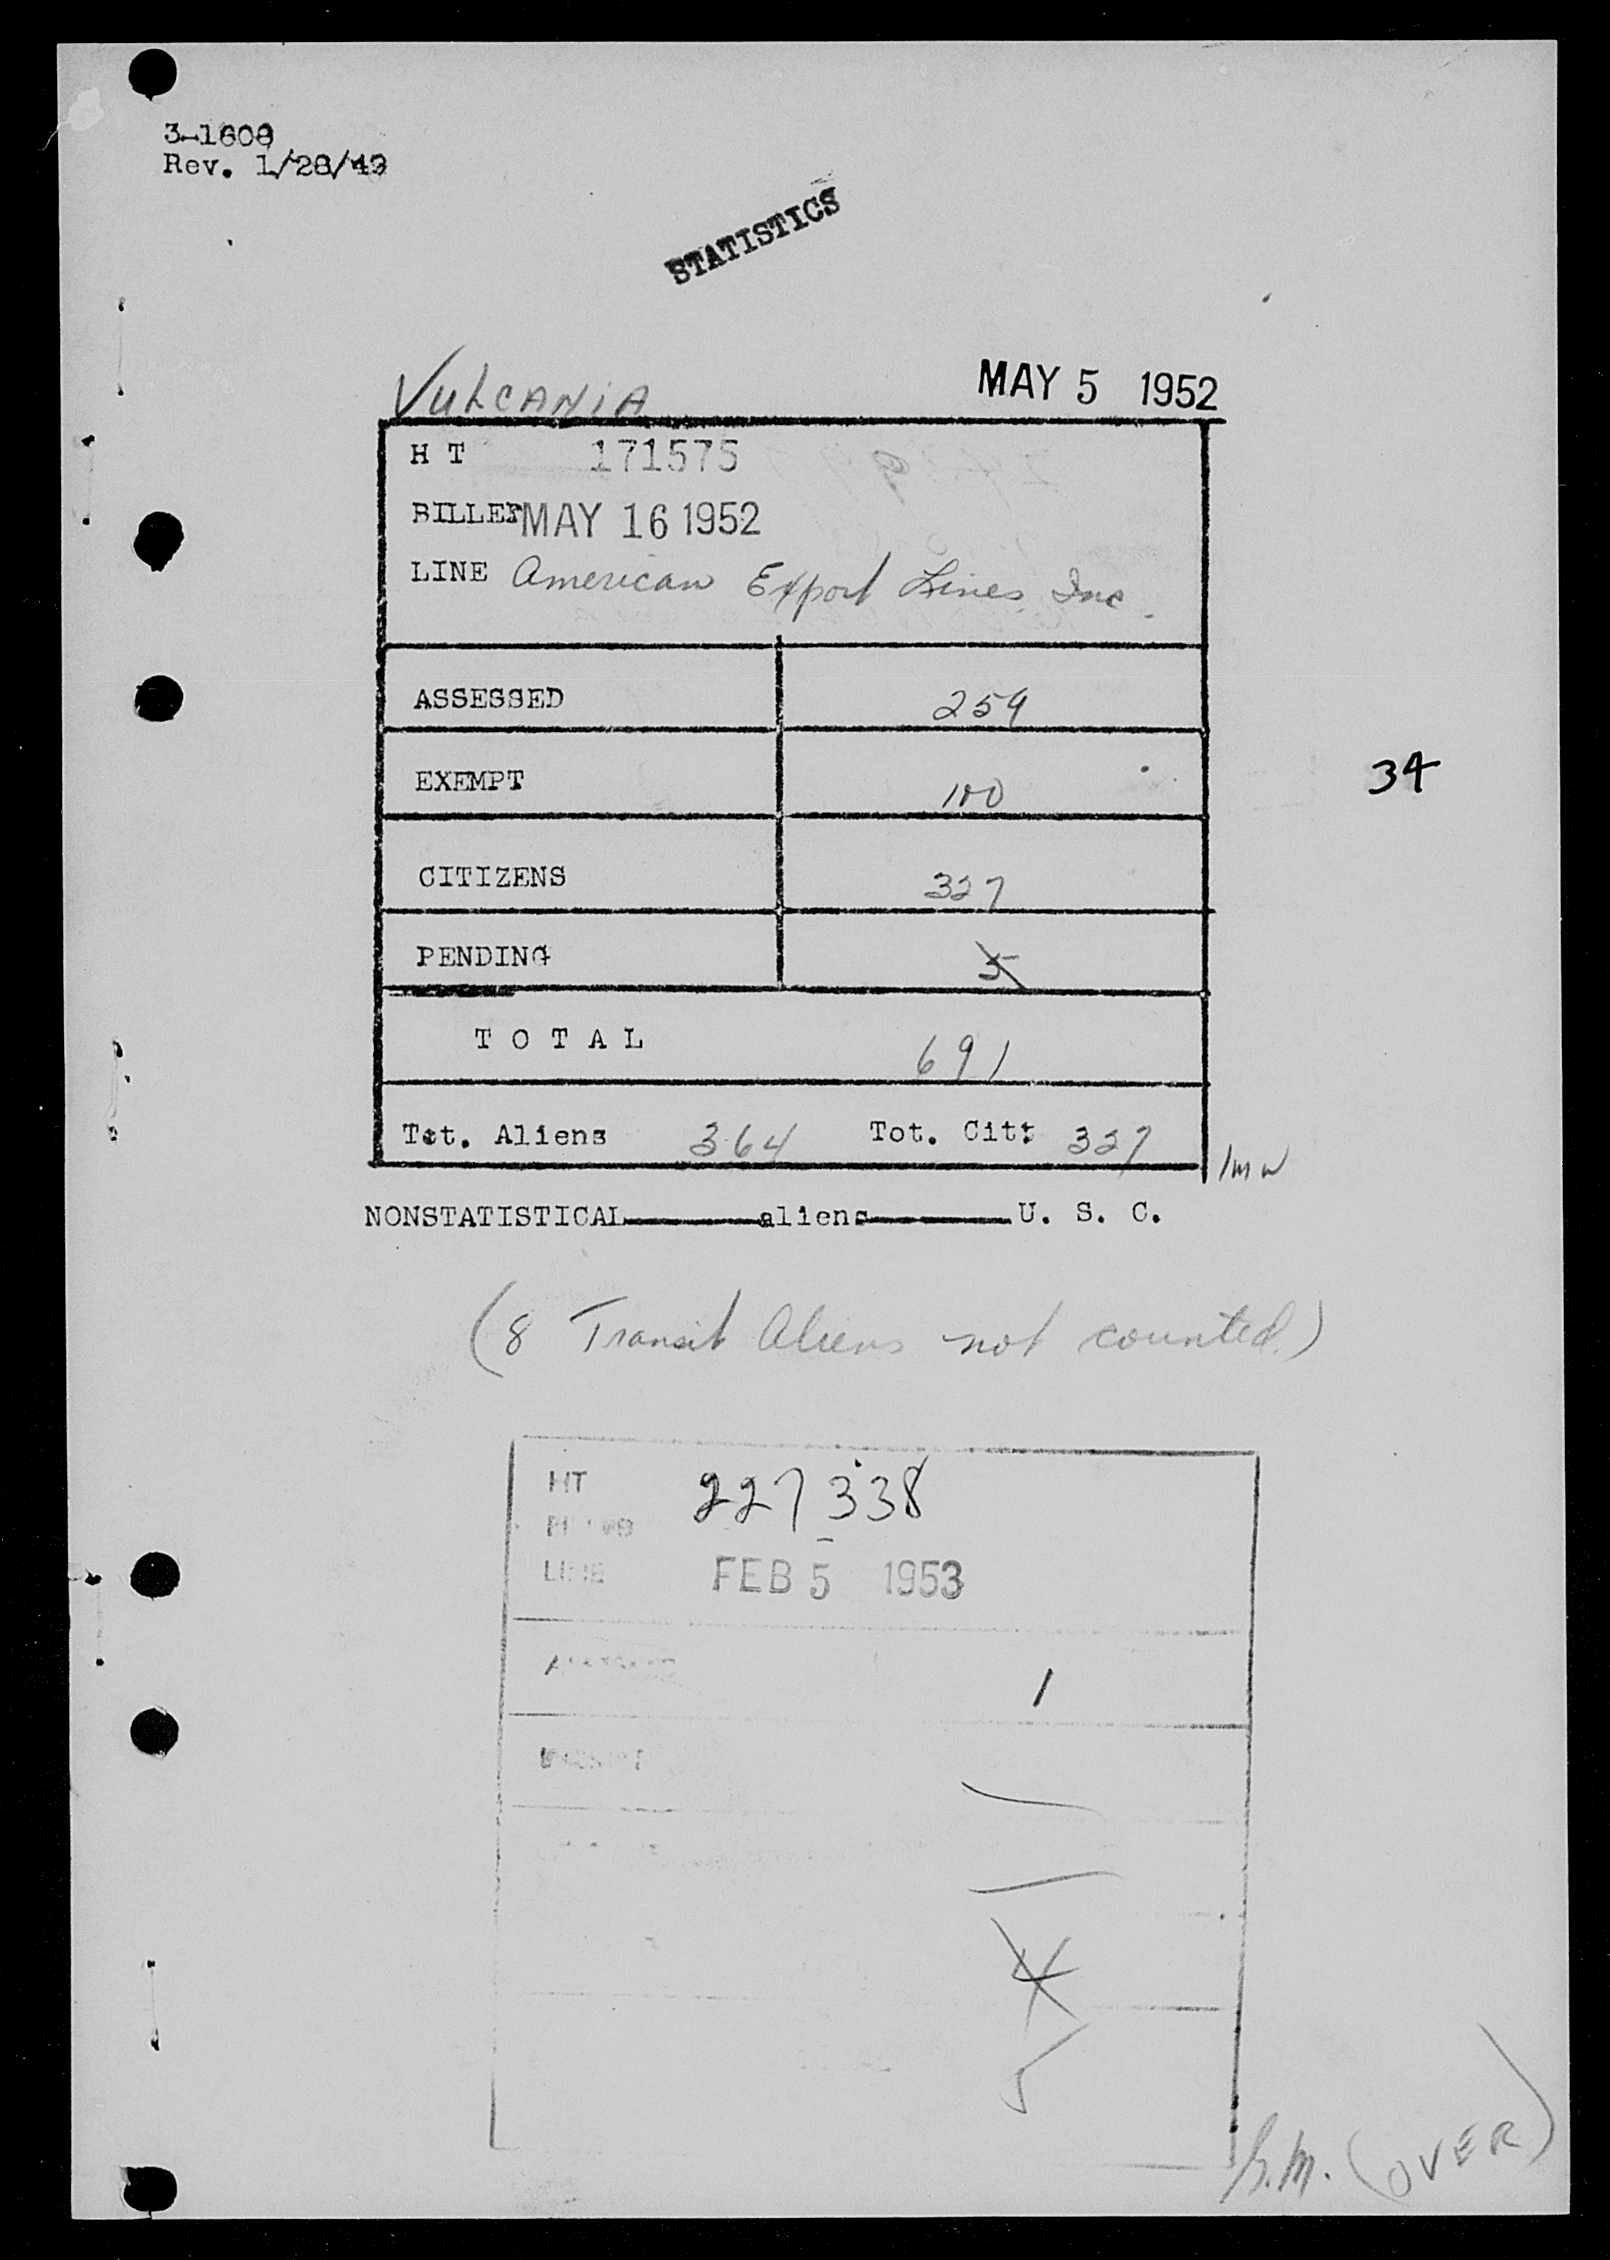 3-1608
Rev. 1/28/49
STATISTICS
Vulcania MAY 5 1952
H T 171575
BILLED MAY 16 1952
LINE American Export Lines, Inc.
ASSESSED 259
EXEMPT 100
CITIZENS 327
34
PENDING 5
T O T A L 691
Tot. Aliens 364 Tot. Cit: 327
NONSTATISTICAL aliens U. S. C.
(8 Transit Aliens not counted)
HT 227338
LINE FEB 5 1953
1
4
5
(OVER)